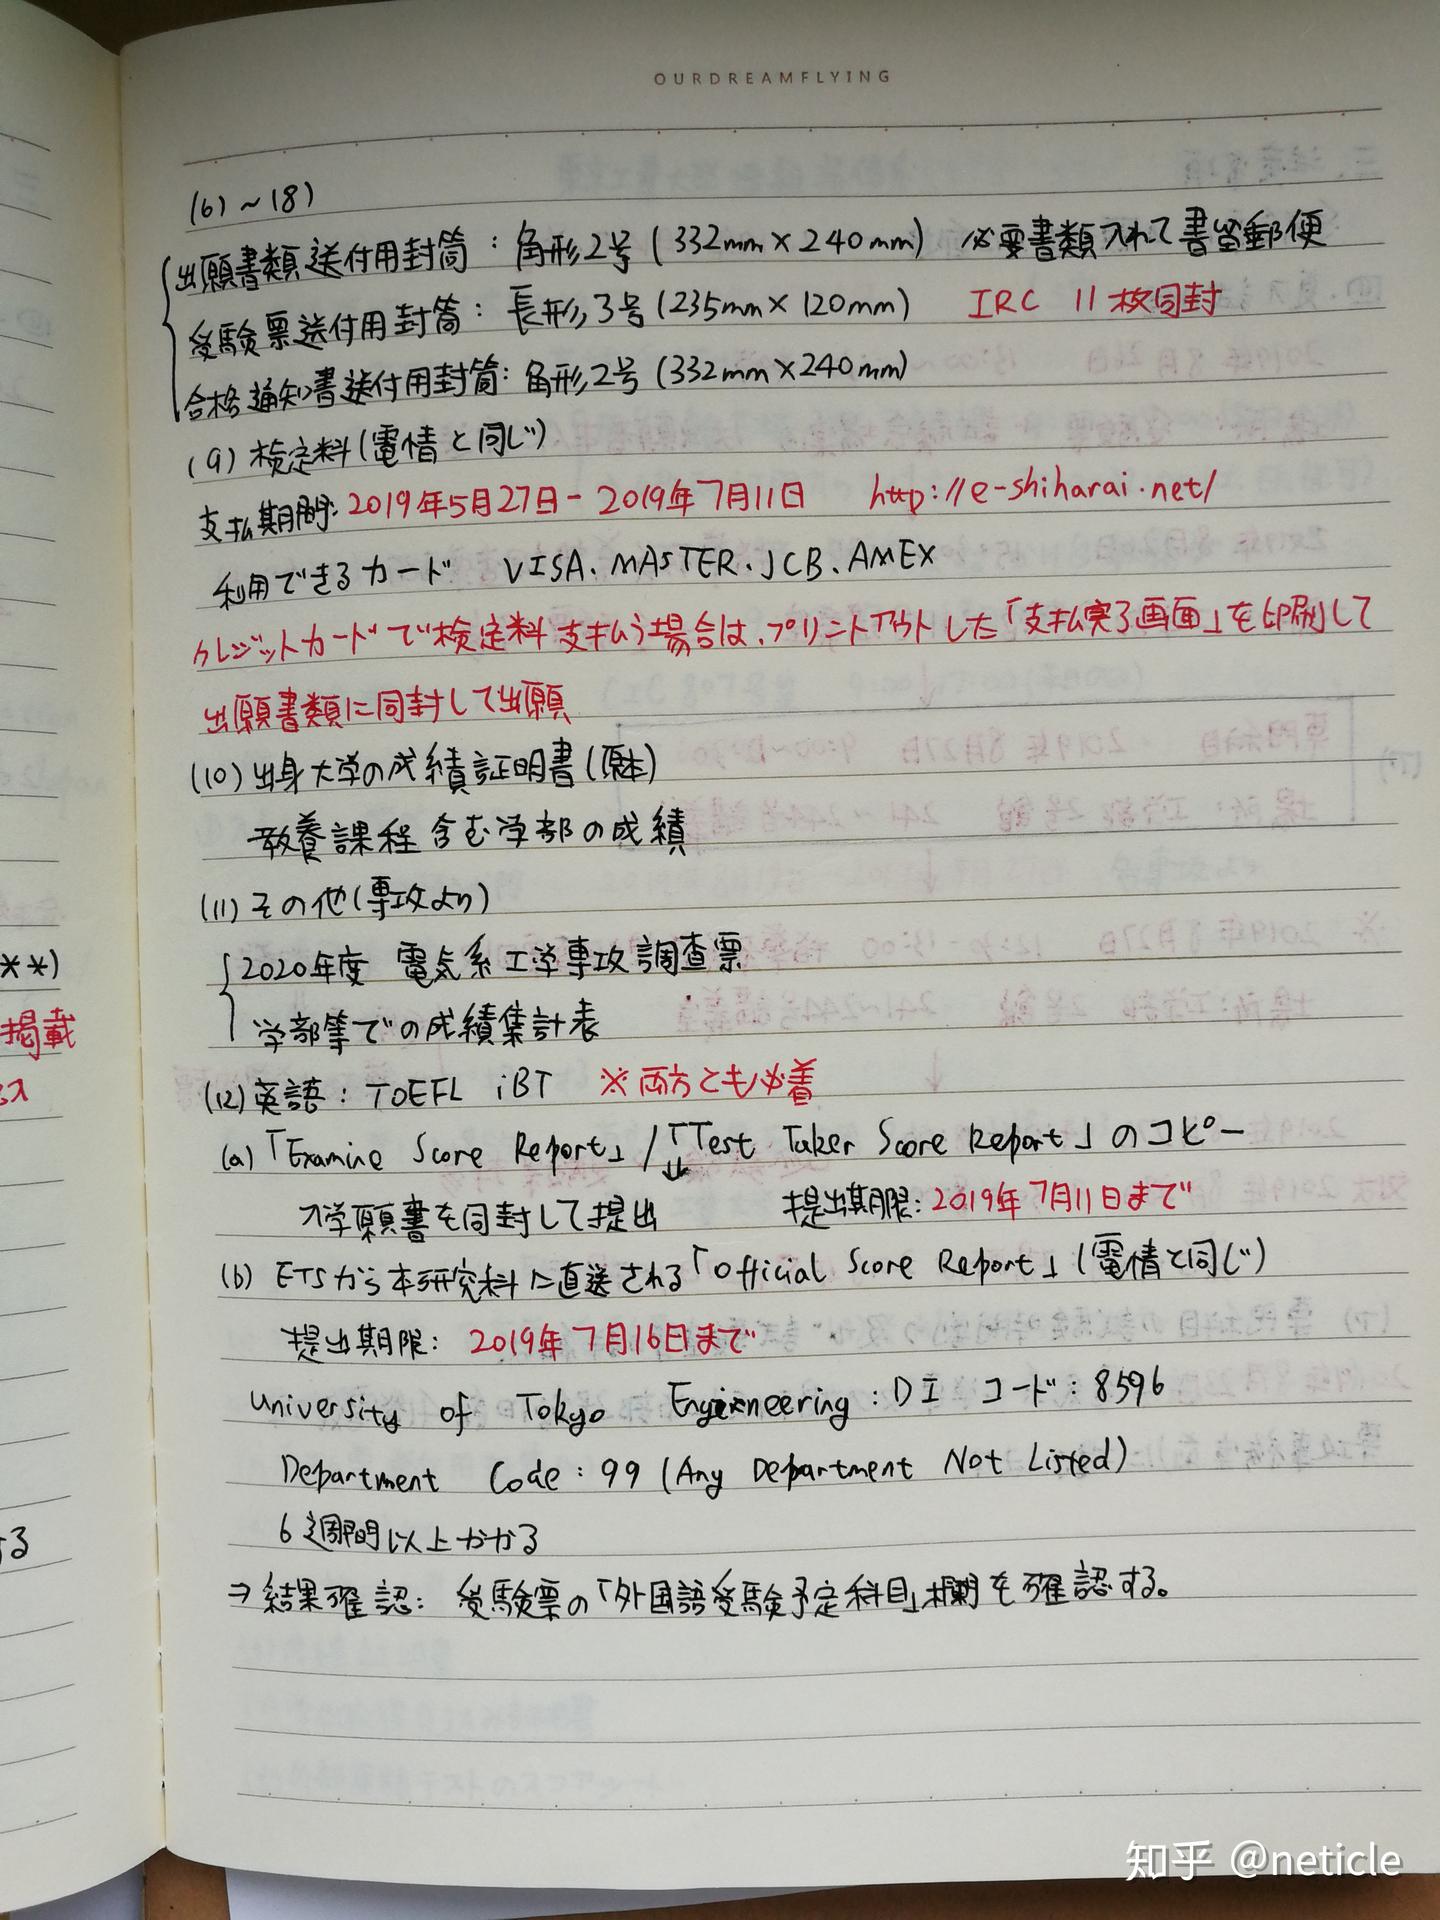 OURDREAMFLYING
(6)~(8)
出願書類送付用封筒：角形2号(332mm×240mm) 必要書類入れて書留郵便
受験票送付用封筒：長形3号(235mm×120mm) IRC 11枚同封
合格通知書送付用封筒：角形2号(332mm×240mm)
(9) 検定料(電情と同じ)
支払期間：2019年5月27日-2019年7月11日 http://e-shiharai.net/
利用できるカード VISA.MASTER.JCB.AMEX
クレジットカードで検定料支払う場合は、プリントアウトした「支払完了画面」を印刷して
出願書類に同封して出願
(10) 出身大学の成績証明書(原本)
教養課程含む学部の成績
(11) その他(専攻より)
2020年度 電気系工学専攻調査票
学部等での成績集計表
(12) 英語：TOEFL iBT ※両方とも必着
(a)「Examine Score Report」/「Test Taker Score Report」のコピー
↓
入学願書を同封して提出 提出期限：2019年7月11日まで
(b) ETSから本研究科に直送される「Official Score Report」(電情と同じ)
提出期限：2019年7月16日まで
University of Tokyo Engineering：DI コード：8596
Department Code：99 (Any Department Not Listed)
6週間以上かかる
⇒結果確認：受験票の「外国語受験予定科目」欄を確認する。
**)
掲載
る
知乎 @neticle